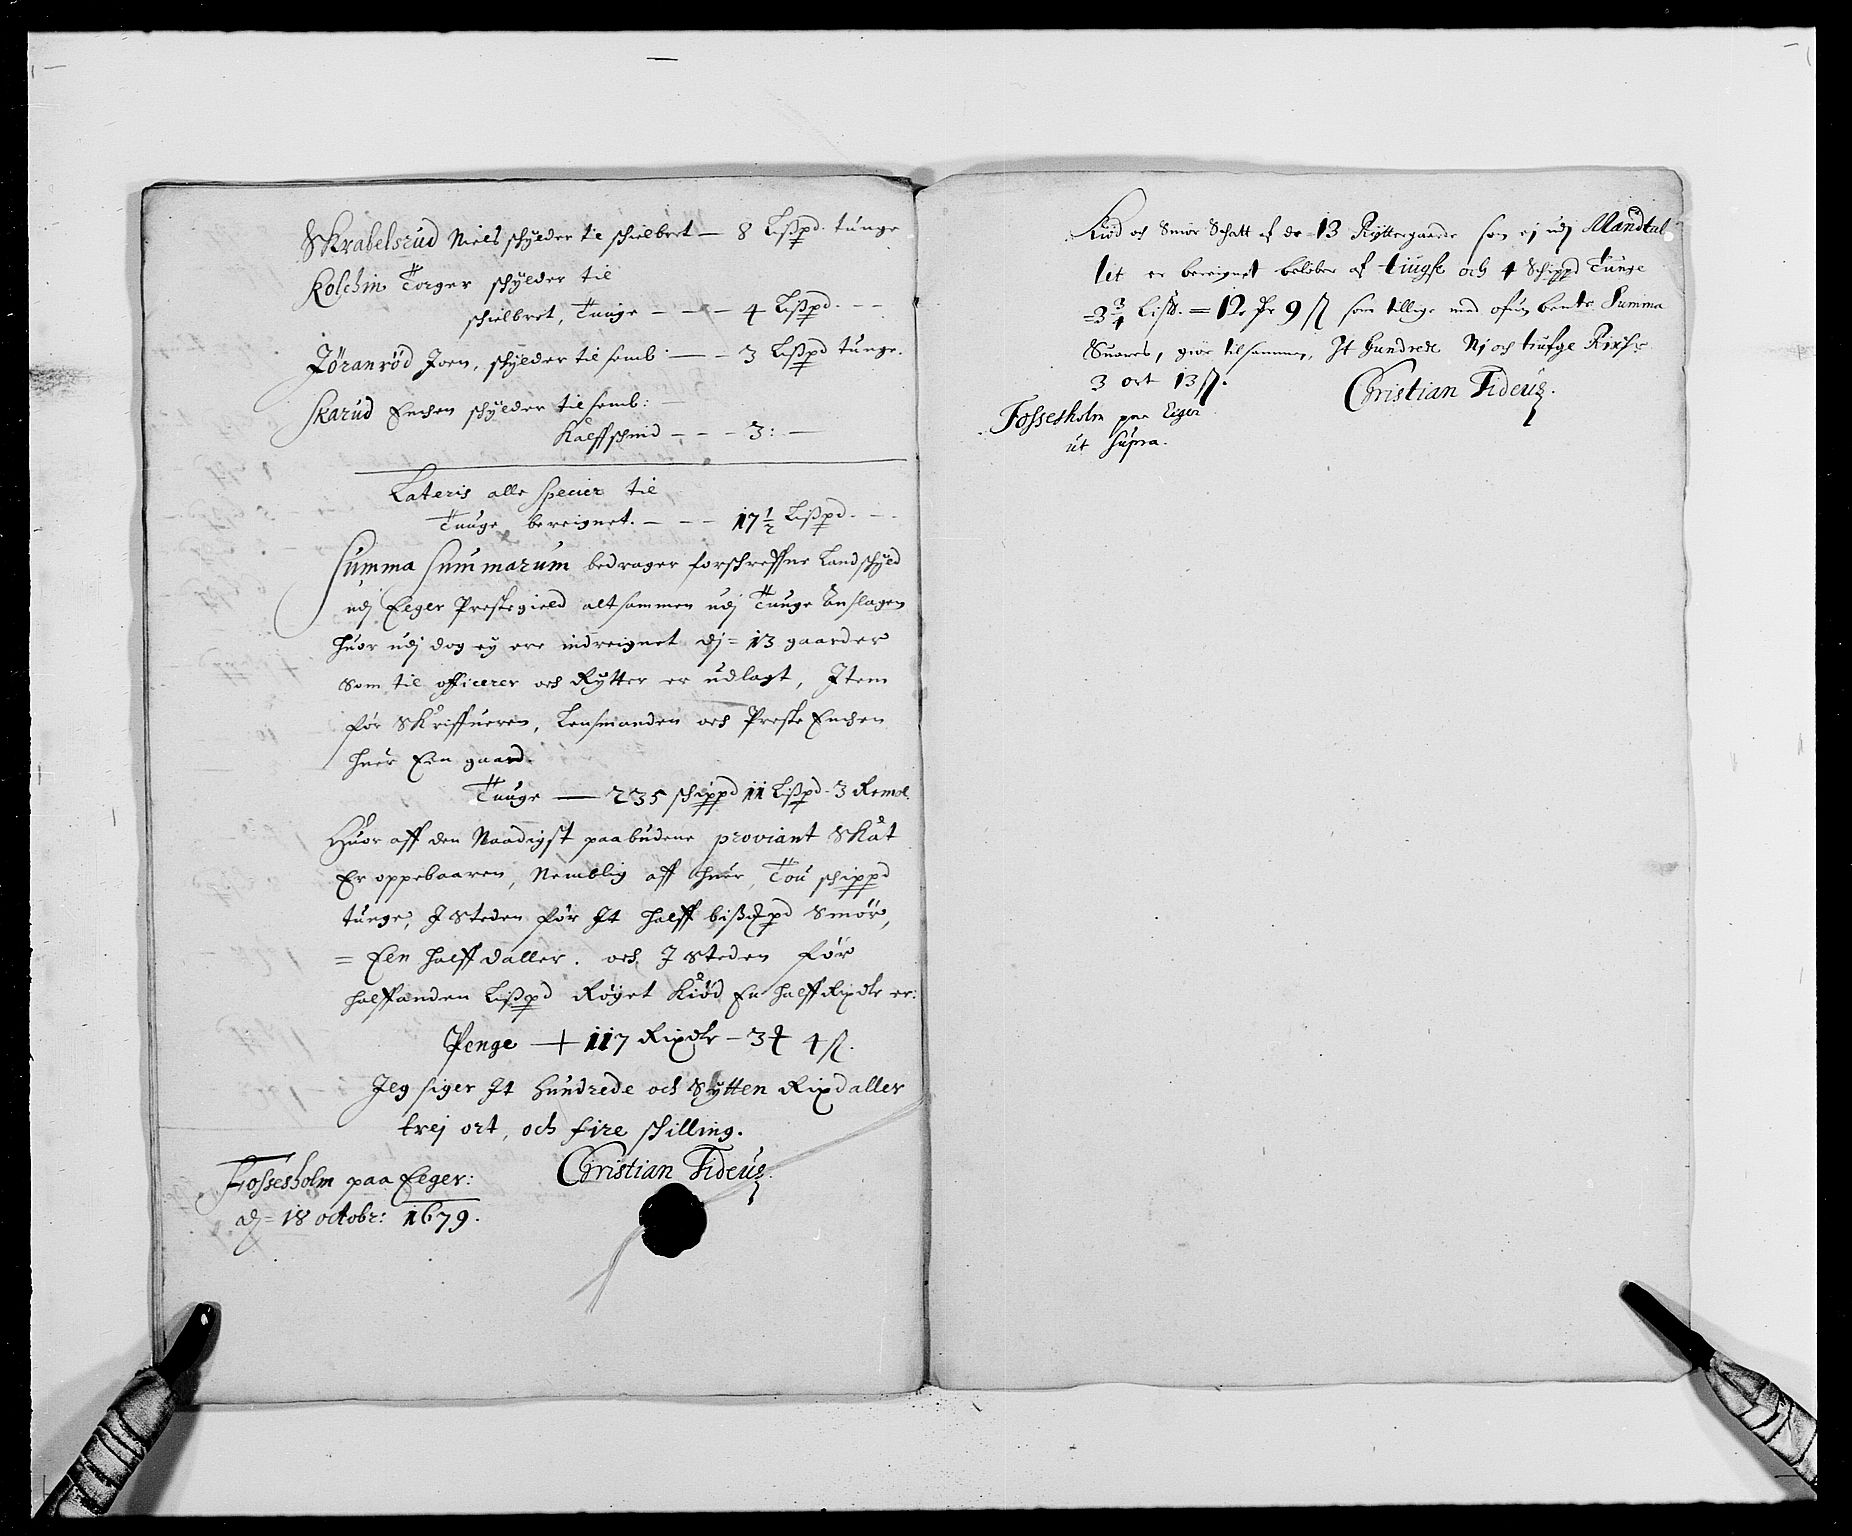 Skrabelsrud Niels schylder til schielbret — 8 Lißpd. tunge
Kolchin Torger schylder til
schielbret, Tunge — — — 4 Lißpd. — —
Jöranröd Joen, schylder til somb: — — 3 Lißpd tunge.
Skarud Enchen schylder til somb: —
Kalffschind — — — 3: —
Lateris alle Specier til
Tunge bereignet. — — — 17 1/2 Lißpd. — —
Summa Summarum bedrager forschreffne Landschyld
udj Eeger Prestegield altsammen udj Tunge Anslagen
huor udj dog ey ere indreignet dj = 13 gaarder
som til officerer och Rytter er udlagt, Item
for Skriffueren, Lensmanden och Preste Enchen
huer Een gaard.
Tunge — 235 schippd 11 Lißpd. 3 Remol.
Huor aff den Naadigst paabudene proviant Skat
Er oppebaaren, Nemblig aff huer Tou schippd
tunge, J Steden for Jt halff bißdpd Smör,
= Een halff daller. och J Steden for
halffanden Lißpd Røget Kiød En halff Rixdlr er:
Penge — 117 Rixdlr – 3 4 ß.
Jeg siger Jt Hundrede och Sytten Rixdaller
trej ort, och fire skilling.
Fossesholm paa Eeger:
dj = 18 octobr: 1679.
Christian Tideus.
Kiød och Smør Schatt af de 13 Ryttergaarde som ej udj Mandtal
let er bereignet beløber af tiugfe och 4 Schippd Tunge
= 3 3/4 Lißd. = 12 9 ß som tillige med Summa
Suares, giør tilsammen, Jt Hundrede Nj och tiufge Rixs
3 ort 13 ß.
Christian Tideus.
Fossesholm paa Eiger
ut Supra.